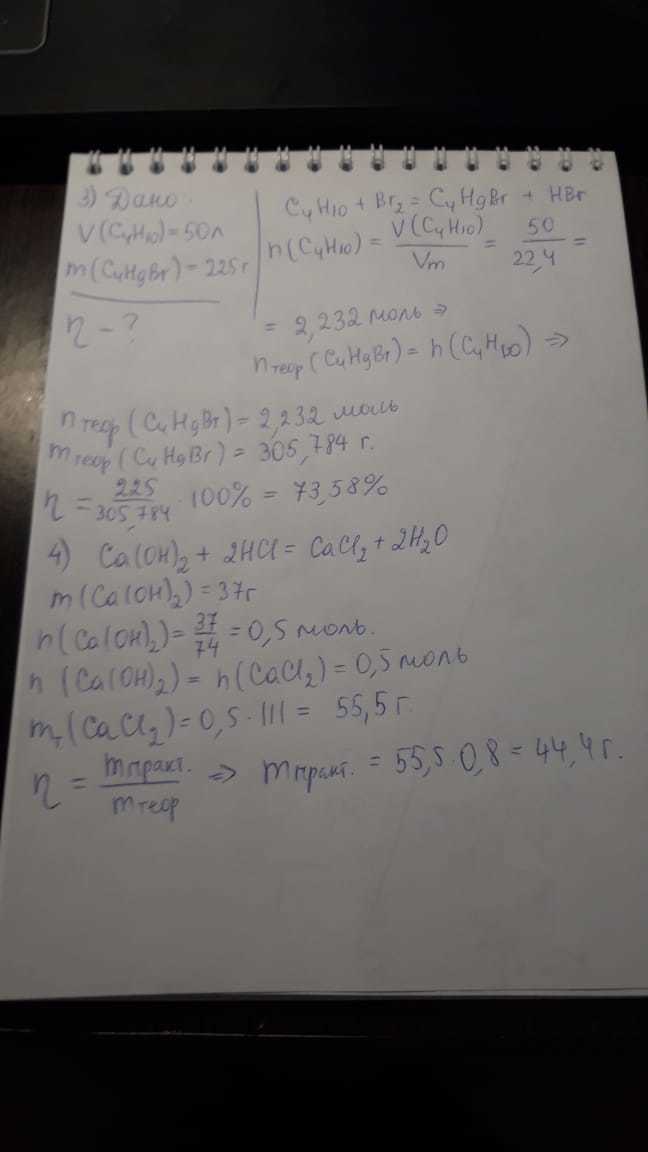 3) Дано:
V(C₄H₁₀)=50л
m(C₄H₉Br)=225г
η - ?
C₄H₁₀ + Br₂ = C₄H₉Br + HBr
n(C₄H₁₀) = V(C₄H₁₀)/Vm = 50/22,4 =
= 2,232 моль ⇒
nтеор(C₄H₉Br) = n(C₄H₁₀) ⇒
nтеор(C₄H₉Br) = 2,232 моль
mтеор(C₄H₉Br) = 305,784 г.
η = 225/305,784 · 100% = 73,58%
4) Ca(OH)₂ + 2HCl = CaCl₂ + 2H₂O
m(Ca(OH)₂) = 37г
n(Ca(OH)₂) = 37/74 = 0,5 моль.
n (Ca(OH)₂) = n(CaCl₂) = 0,5 моль
mт(CaCl₂) = 0,5 · 111 = 55,5 г.
η = mпракт./mтеор ⇒ mпракт. = 55,5 · 0,8 = 44,4 г.